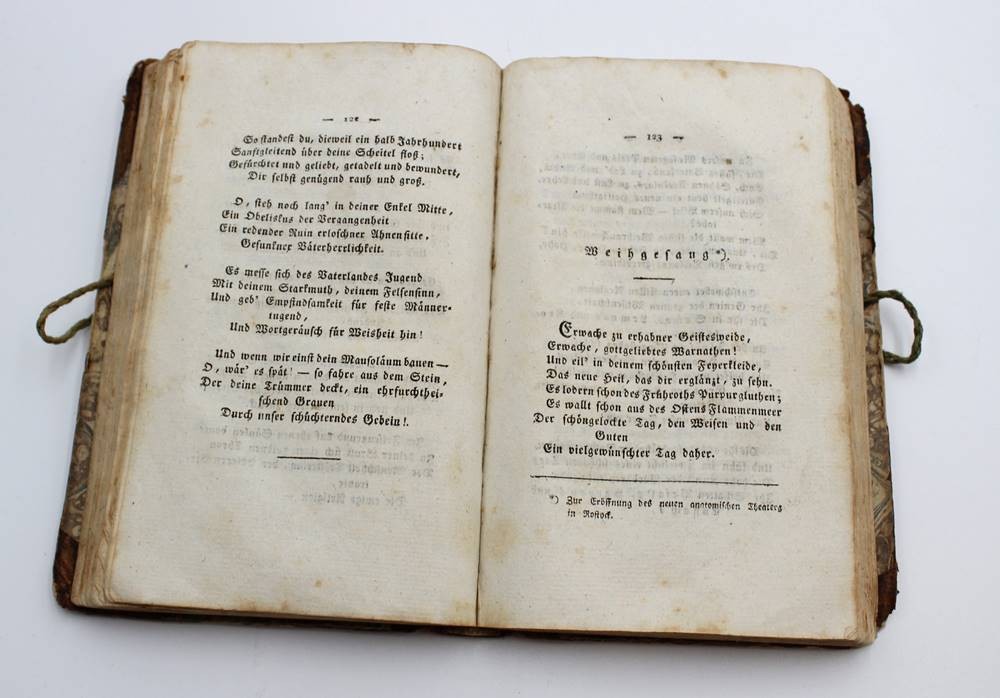 — 122 —
So standest du, dieweil ein halb Jahrhundert
Sanftgleitend über deine Scheitel floß;
Gefürchtet und geliebt, getadelt und bewundert,
Dir selbst genügend rauh und groß.
O, steh noch lang' in deiner Enkel Mitte,
Ein Obeliskus der Vergangenheit
Ein redender Ruin erloschner Ahnensitte,
Gesunkner Väterherrlichkeit.
Es messe sich des Vaterlandes Jugend
Mit deinem Starkmuth, deinem Felsensinn,
Und geb' Empfindsamkeit für feste Männer-
tugend,
Und Wortgeräusch für Weisheit hin!
Und wenn wir einst dein Mausoläum bauen —
O, wär' es spät! — so fahre aus dem Stein,
Der deine Trümmer deckt, ein ehrfurchthei-
schend Grauen
Durch unser schüchterndes Gebein!.
— 123 —
Weihgesang *).
Erwache zu erhabner Geistesweide,
Erwache, gottgeliebtes Warnathen!
Und eil' in deinem schönsten Feyerkleide,
Das neue Heil, das dir erglänzt, zu sehn.
Es lodern schon des Frühroths Purpurgluthen;
Es wallt schon aus des Ostens Flammenmeer
Der schöngelockte Tag, den Weisen und den
Guten
Ein vielgewünschter Tag daher.
*) Zur Eröffnung des neuen anatomischen Theaters
in Rostock.